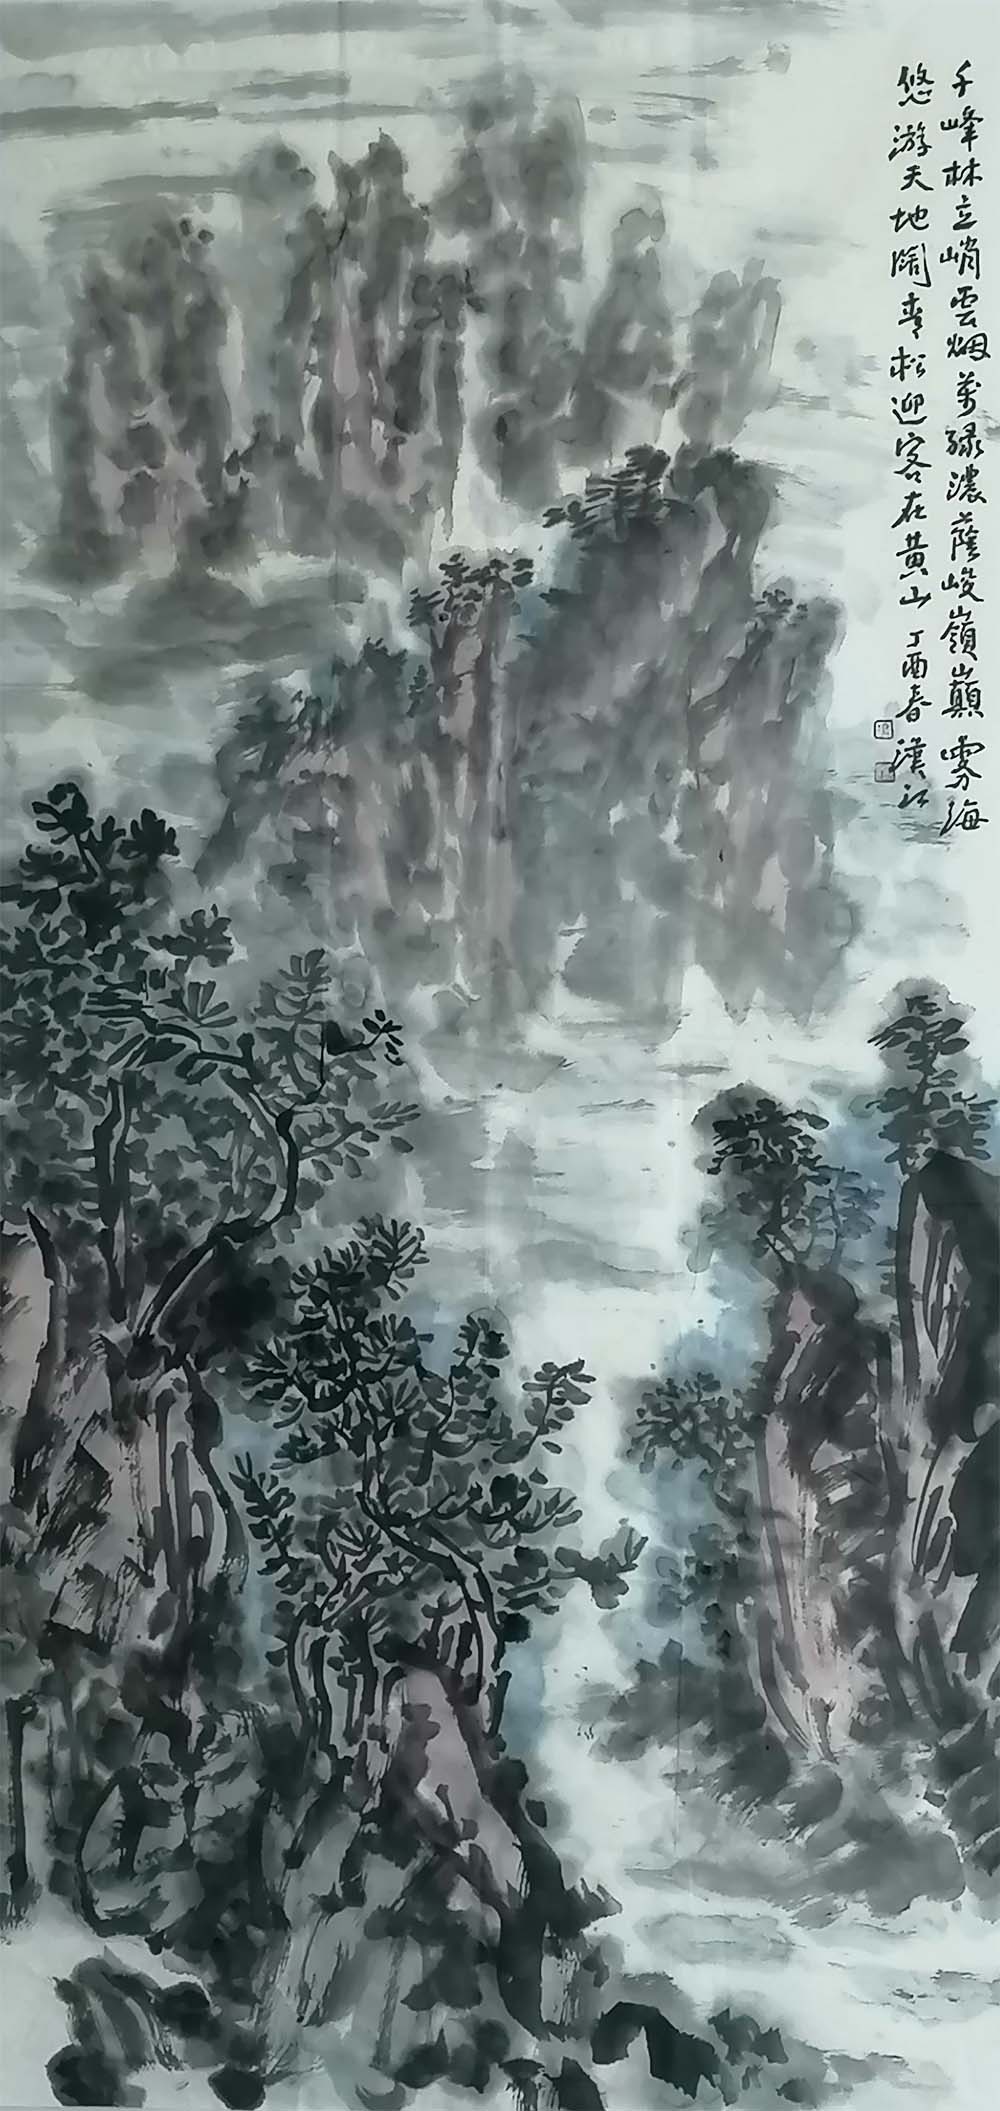 千峰林立峭雲烟萬绿濃蔭峻嶺巔雾海
悠游天地阔青松迎客在黄山丁酉春漢江